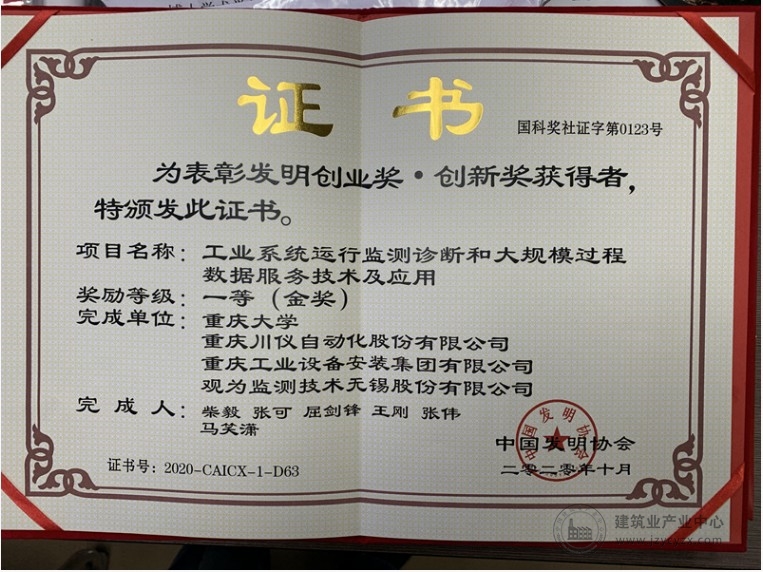 证书
国科奖社证字第0123号
为表彰发明创业奖·创新奖获得者，
特颁发此证书。
项目名称：工业系统运行监测诊断和大规模过程
数据服务技术及应用
奖励等级：一等（金奖）
完成单位：重庆大学
重庆川仪自动化股份有限公司
重庆工业设备安装集团有限公司
观为监测技术无锡股份有限公司
完成人：柴毅 张可 屈剑锋 王刚 张伟
马笑潇
中国发明协会
中国发明协会
证书号：2020-CAICX-1-D63
二零二零年十月
建筑业产业中心